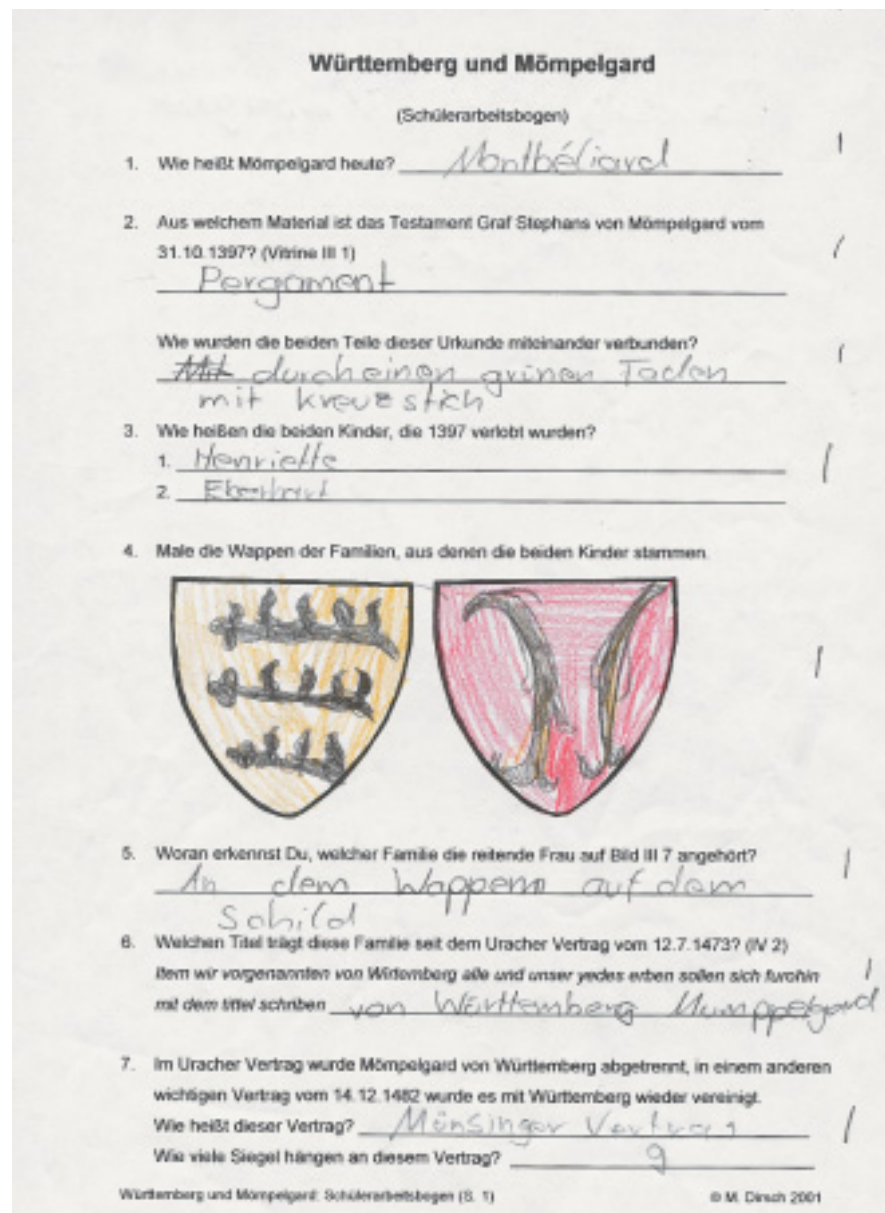 Württemberg und Mömpelgard
(Schülerarbeitsbogen)
1. Wie heißt Mömpelgard heute? Montbéliard
2. Aus welchem Material ist das Testament Graf Stephans von Mömpelgard vom
31.10.1397? (Vitrine III 1)
Pergament
Wie wurden die beiden Teile dieser Urkunde miteinander verbunden?
Mit durch einen grünen Faden
mit kreuzstich
3. Wie heißen die beiden Kinder, die 1397 verlobt wurden?
1. Henriette
2. Eberhart
4. Male die Wappen der Familien, aus denen die beiden Kinder stammen.
5. Woran erkennst Du, welcher Familie die reitende Frau auf Bild III 7 angehört?
An dem Wappem auf dem
Schild
6. Welchen Titel trägt diese Familie seit dem Uracher Vertrag vom 12.7.1473? (IV 2)
Item wir vorgenannten von Wirtemberg alle und unser yedes erben sollen sich furohin
mit dem tittel schriben von Württemberg Mumppelgard
7. Im Uracher Vertrag wurde Mömpelgard von Württemberg abgetrennt, in einem anderen
wichtigen Vertrag vom 14.12.1482 wurde es mit Württemberg wieder vereinigt.
Wie heißt dieser Vertrag? Münsinger Vertrag
Wie viele Siegel hängen an diesem Vertrag? 9
Württemberg und Mömpelgard: Schülerarbeitsbogen (S. 1) © M. Dirsch 2001